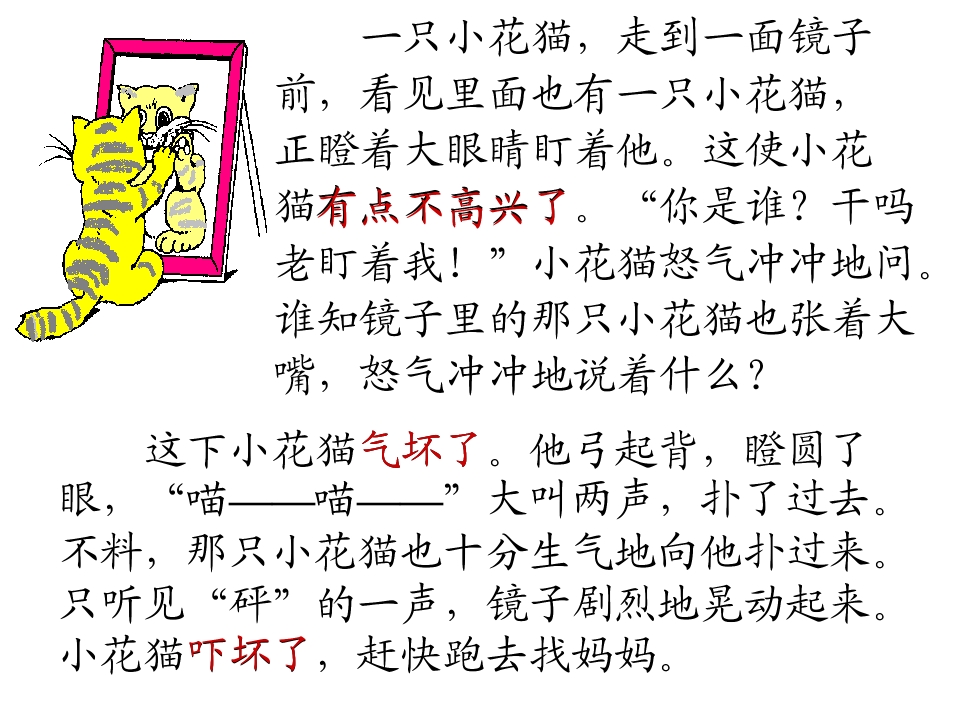 一只小花猫，走到一面镜子
前，看见里面也有一只小花猫，
正瞪着大眼睛盯着他。这使小花
猫有点不高兴了。“你是谁？干吗
老盯着我！”小花猫怒气冲冲地问。
谁知镜子里的那只小花猫也张着大
嘴，怒气冲冲地说着什么？
这下小花猫气坏了。他弓起背，瞪圆了
眼，“喵——喵——”大叫两声，扑了过去。
不料，那只小花猫也十分生气地向他扑过来。
只听见“砰”的一声，镜子剧烈地晃动起来。
小花猫吓坏了，赶快跑去找妈妈。